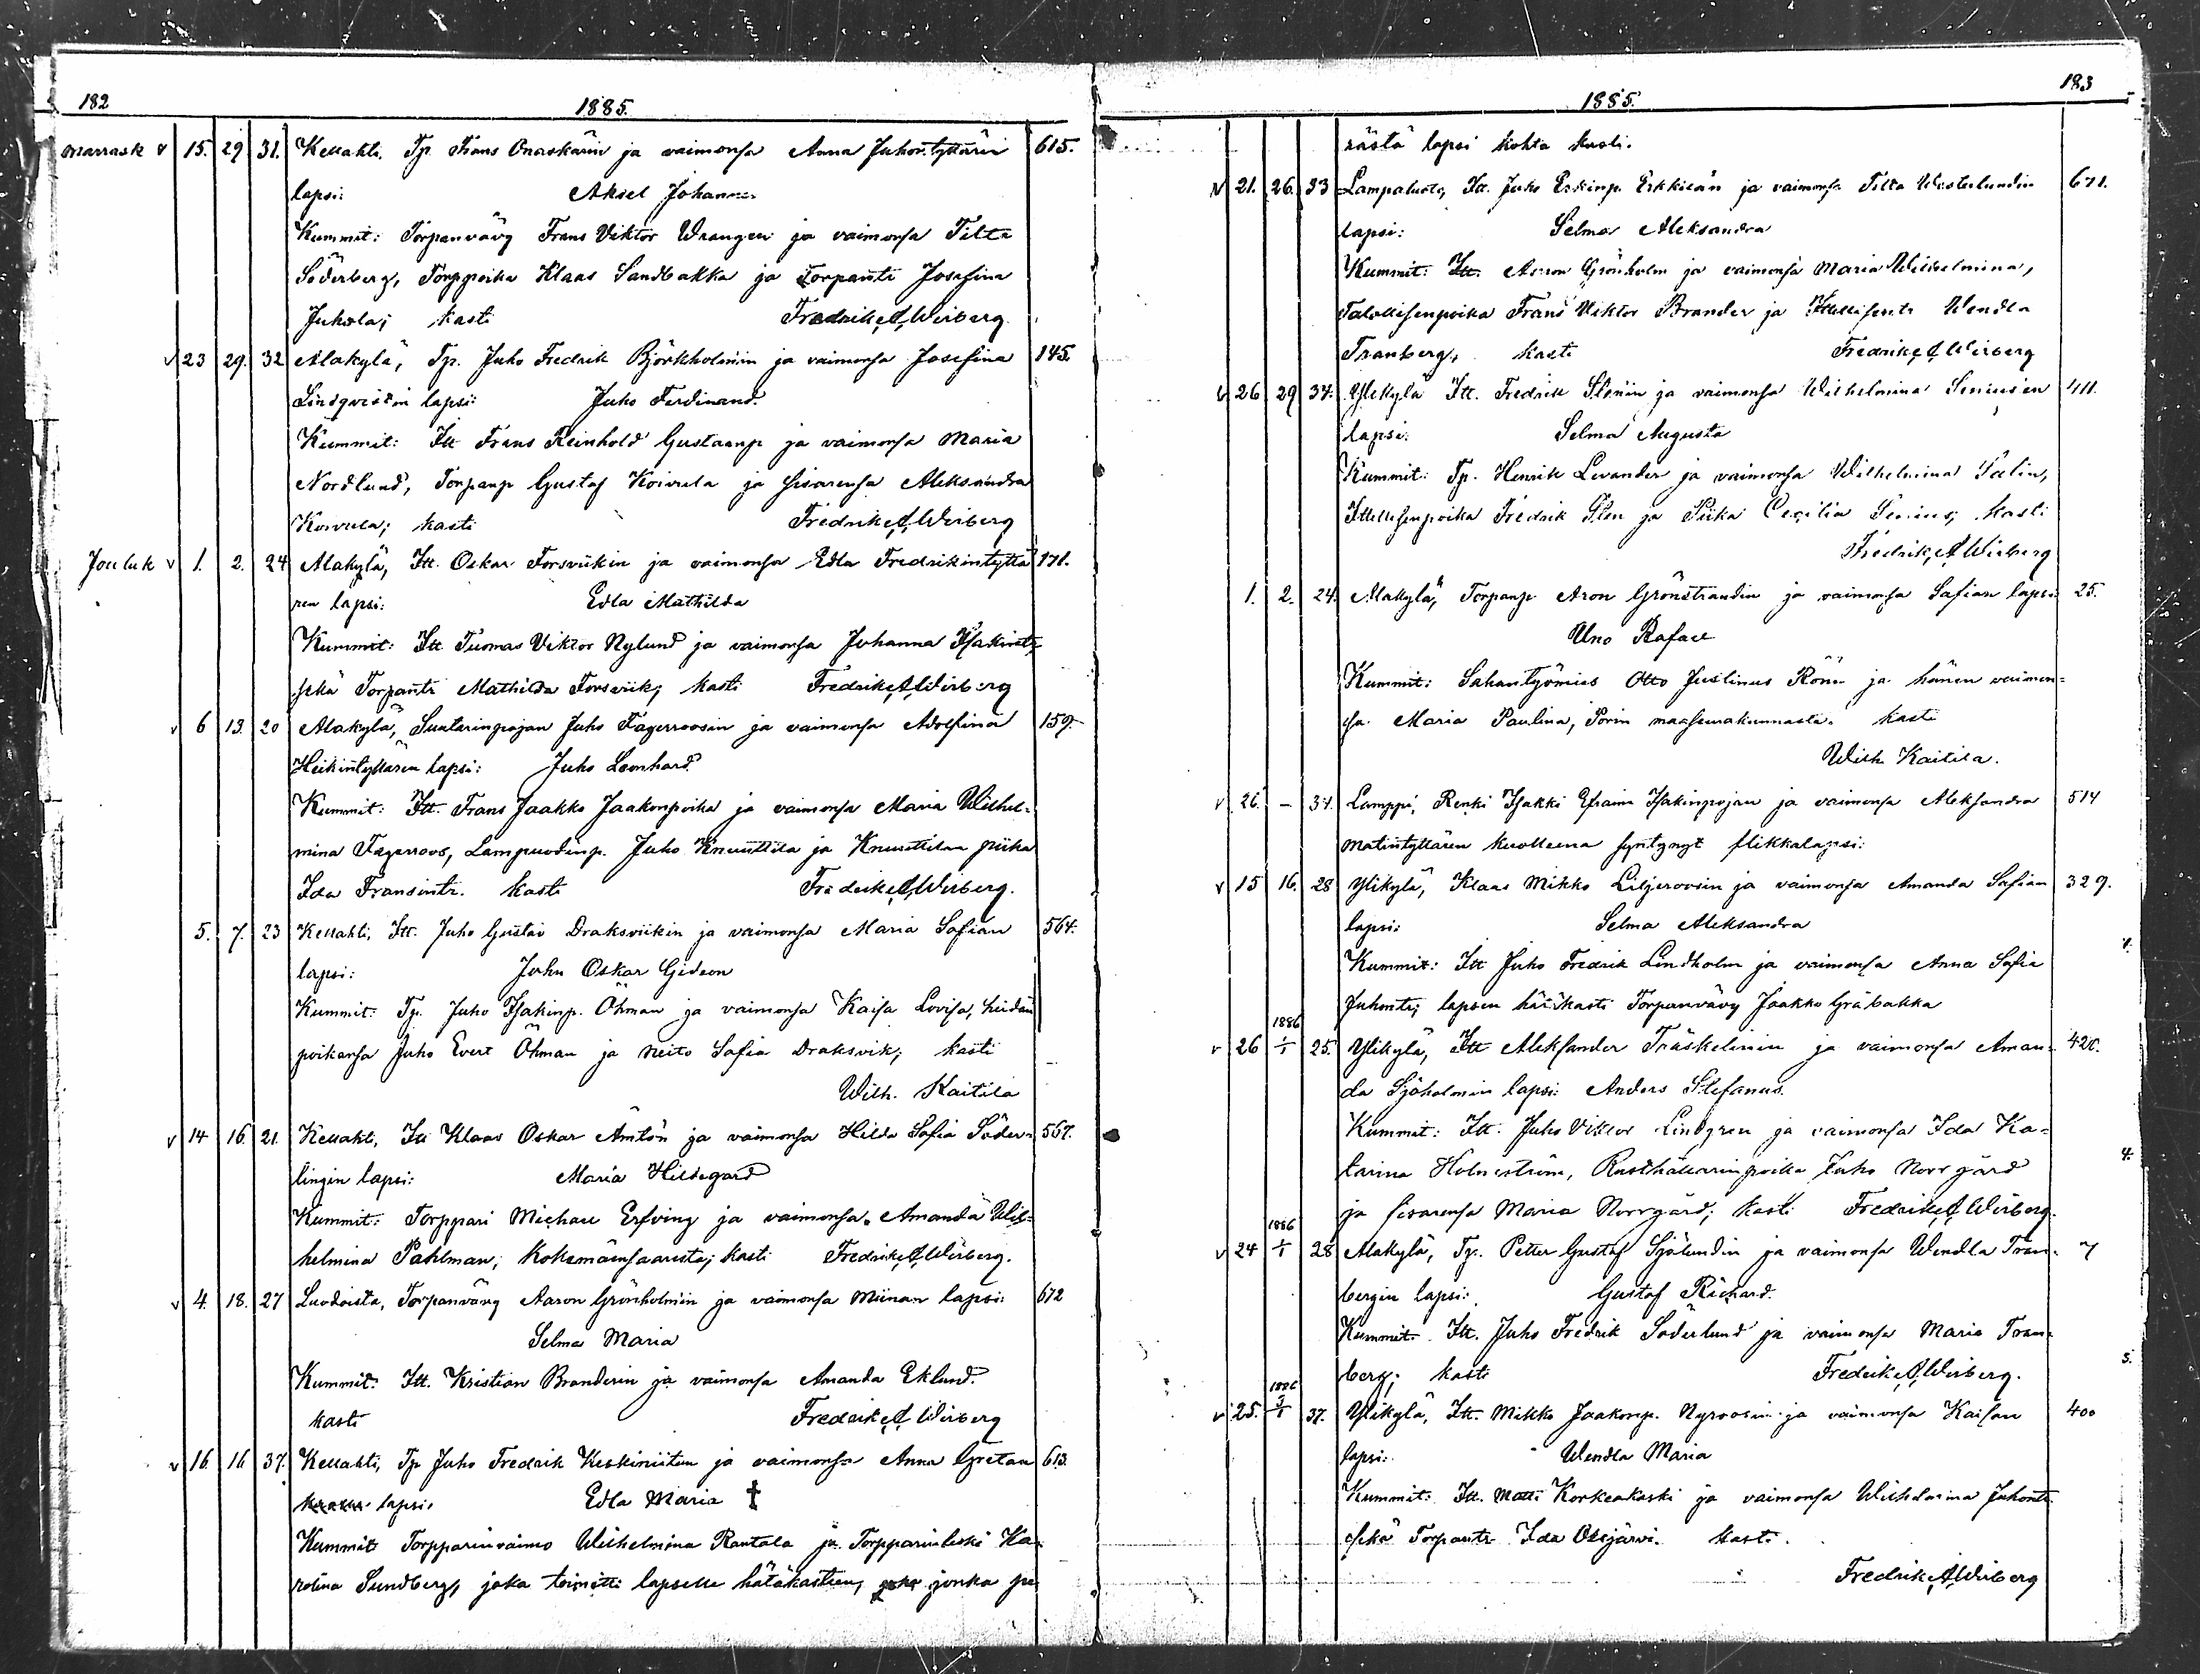 182
1885.
Marrask v 15. 29 31. Kellahti, Tp. Frans Onaskärin ja vaimonsa Anna Juhontyttären 615.
lapsi: Aksel Johannes
Kummit: Torpanvävy Frans Viktor Wrangen ja vaimonsa Tilta
Söderberg, Torppoika Klaas Sandbakka ja Torpantr Josefina
Juhola; kasti Fredrik A. Wirberg
v 23 29. 32 Alakylä, Tp. Juho Fredrik Björkholmin ja vaimonsa Josefina 145.
Lindqvistin lapsi: Juho Ferdinand.
Kummit: Itt Frans Reinhold Gustaanp ja vaimonsa Maria
Nordlund, Torpanp Gustaf Koivula ja sisarensa Aleksandra
Koivula; kasti Fredrik A. Wirberg
Jouluk v 1. 2. 24 Alakylä, Itt. Oskar Forsviikin ja vaimonsa Edla Fredrikintyttä 171.
ren lapsi: Edla Mathilda
Kummit: Itt Tuomas Viktor Nylund ja vaimonsa Johanna Isakintr
sekä Torpantr Mathilda Forsviik; kasti Fredrik A. Wirberg
v 6 13. 20 Alakylä, Suutarinpojan Juho Fagerroosin ja vaimonsa Adolfina 159.
Heikintyttären lapsi: Juho Leonhard.
Kummit: Itt. Frans Jaakko Jaakonpoika ja vaimonsa Maria Wilhel-
mina Fagerroos, Lampuodinp. Juho Knuuttila ja Knuuttilan piika
Ida Fransintr. kasti Fredrik A. Wirberg.
5. 7. 23 Kellahti, Itt. Juho Gustav Draksviikin ja vaimonsa Maria Sofian 564.
lapsi: John Oskar Gideon
Kummit: Tp. Juho Isakinp. Öhman ja vaimonsa Kaisa Lovisa, heidän
poikansa Juho Evert Öhman ja neito Sofia Draksvik; kasti
Wilh. Kaitila
v 14 16. 21. Kellahti, Itt Klaas Oskar Antön ja vaimonsa Hilda Sofia Söder- 567.
lingin lapsi: Maria Hildegard
Kummit: Torppari Michael Erfving ja vaimonsa Amanda Wil-
helmina Pahlman, Kokemäensaarista; kasti Fredrik A. Wirberg.
v 4. 18. 27 Luodoista, Torpanvävy Aaron Grönholmin ja vaimonsa Miinan lapsi: 672
Selma Maria
Kummit: Itt. Kristian Branderin ja vaimonsa Amanda Eklund.
kasti Fredrik A. Wirberg
v 16. 16 37. Kellahti, Tp Juho Fredrik Keskiniitun ja vaimonsa Anna Gretan 613.
lapsi: Edla Maria †
Kummit Torpparinvaimo Wilhelmina Rantala ja Torpparinleski Ka-
rolina Sundberg, joka toimitti lapselle hätäkasteen, jonka pe
183
1885.
rästä lapsi kohta kuoli.
v 21. 26. 33 Lampaluoto, Itt. Juho Erkinp. Erkkilän ja vaimonsa Tilta Westerlundin 671.
lapsi: Selma Aleksandra
Kummit: Itt. Aaron Grönholm ja vaimonsa Maria Wilhelmina,
Talollisenpoika Frans Viktor Brander ja Itsellisentr Wendla
Tranberg, kasti Fredrik A. Wirberg
v 26 29 34. Ylikylä Itt. Fredrik Stenin ja vaimonsa Wilhelmina Seniusen 411.
lapsi: Selma Augusta
Kummit: Tp. Henrik Levander ja vaimonsa Wilhelmina Salin,
Itsellisenpoika Fredrik Sten ja Piika Cecilia Senius; kasti
Fredrik A. Wirberg
1. 2. 24. Alakylä, Torpanp Aron Grönstrandin ja vaimonsa Sofian lapsi 25.
Uno Rafael
Kummit: Sahantyömies Otto Justinus Rönn ja hänen vaimon-
sa Maria Paulina, Porin maaseurakunnasta. kasti
Wilh Kaitila.
v 26. – 31. Lamppi, Renki Isakki Efraim Isakinpojan ja vaimonsa Aleksandra 514
Matintyttären kuolleena syntynyt flikkalapsi:
v 15 16. 28 Ylikylä, Klaas Mikko Liljeroosin ja vaimonsa Amanda Sofian 329.
lapsi: Selma Aleksandra
Kummit: Itt Juho Fredrik Lindholm ja vaimonsa Anna Sofia
Juhontr; lapsen hätäkasti Torpanvävy Jaakko Gräbakka
1886
v 26 1/1 25. Ylikylä, Itt Aleksander Träskelinin ja vaimonsa Aman- 420.
da Sjöholmin lapsi: Anders Stefanus.
Kummit: Itt. Juho Viktor Lindgren ja vaimonsa Ida Ka-
tarina Holmström, Rusthållarinpoika Juho Norrgård
ja sisarensa Maria Norrgård; kasti Fredrik A. Wirberg.
1886
v 24 1/1 28 Alakylä, Tp. Petter Gustaf Sjölundin ja vaimonsa Wendla Tran- 7
bergin lapsi: Gustaf Richard.
Kummit. Itt. Juho Fredrik Söderlund ja vaimonsa Maria Tran-
berg; kasti Fredrik A. Wirberg.
1886
v 25. 3/1 37. Ylikylä, Itt. Mikko Jaakonp. Nyroosin ja vaimonsa Kaisan 400
lapsi: Wendla Maria
Kummit: Itt. Matti Korkeakoski ja vaimonsa Wilhelmina Juhontr
sekä Torpantr Ida Oksjärvi. kasti.
Fredrik A. Wirberg